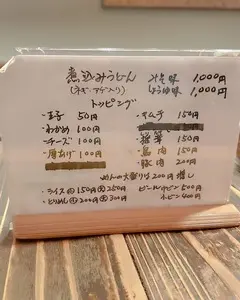 煮込みうどん
(ネギ・アゲ入り)
みそ味 1,000円
しょうゆ味 1,000円
トッピング
・玉子 50円
・わかめ 100円
・チーズ 100円
・厚あげ 100円
・キムチ 150円
150円
・鳥肉 150円
・豚肉 200円
めんの大盛りは 200円増し
・ライス 小150円 大250円
・とりめし 小200円 大300円
ビール中ビン 500円
小ビン 400円